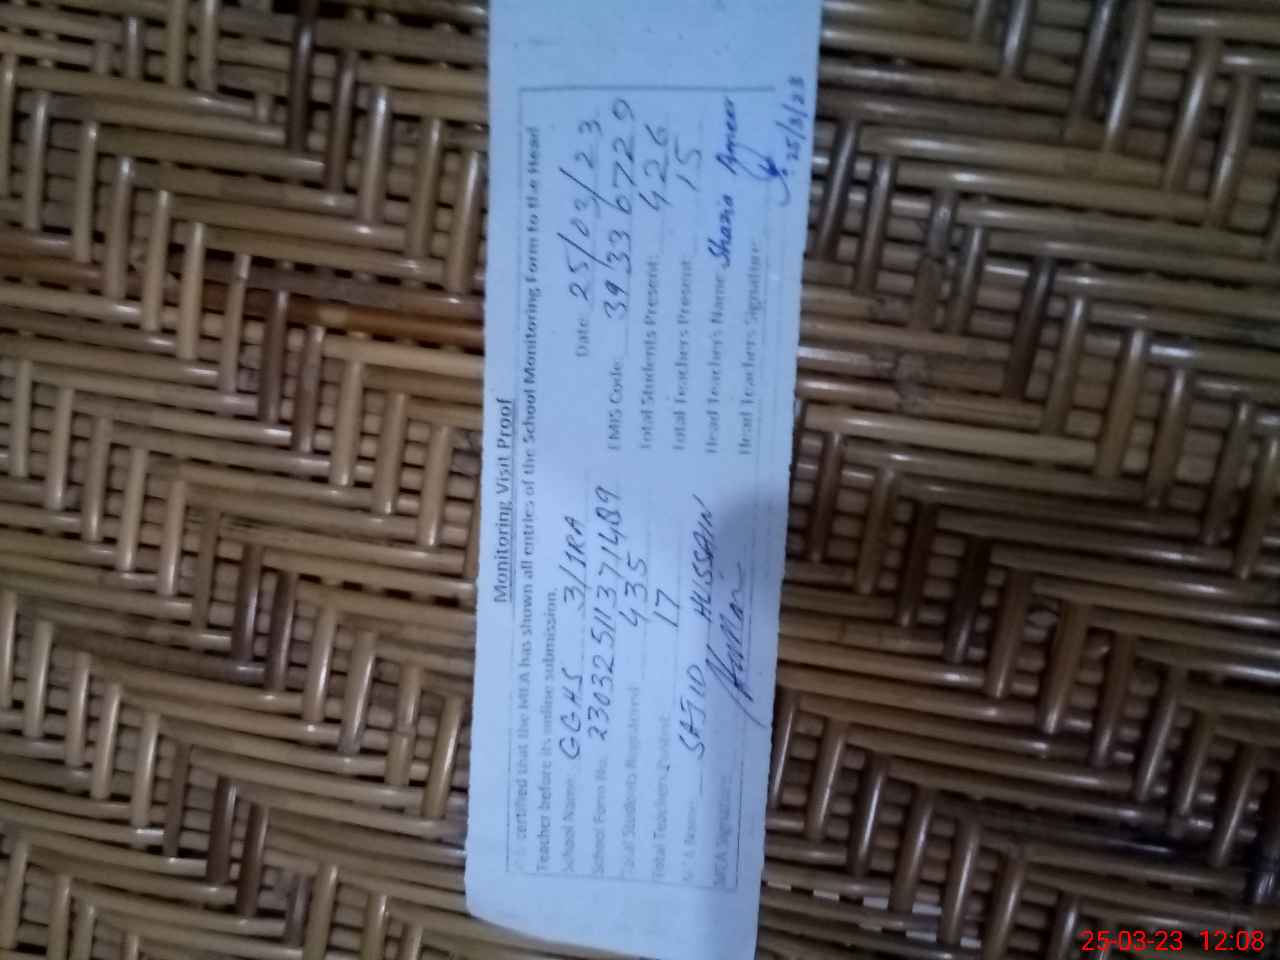 Monitoring Visit Proof
certified that the MEA has shown all entries of the School Monitoring Form to the Head
Teacher before its online submission.
School Name: GGHS 3/1RA Date: 25/03/23
School Form No. 23032511371489 EMIS Code: 39336729
Total Students Registered: 435 Total Students Present: 426
Total Teachers Posted: 17 Total Teachers Present: 15
MEA Name: SAJID HUSSAIN Head Teacher's Name: Shazia Ameer
MEA Signature: Head Teachers Signature:
25/3/23
25-03-23 12:08